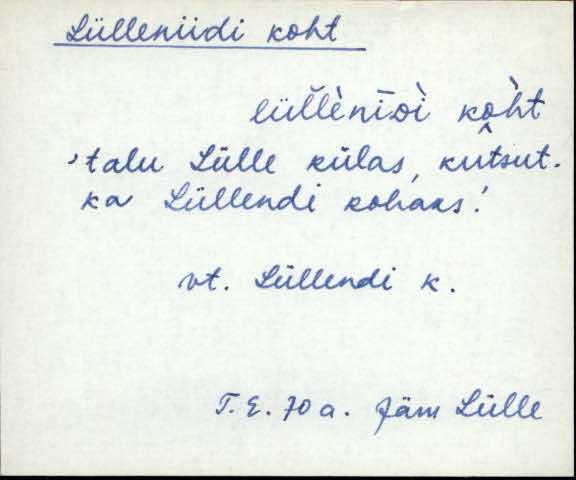 Lülleniidi koht
lül̆lènīᴅì kò̭ht
'talu Lülle külas, kutsut.
ka Lüllendi kohaks.'
vt. Lüllendi k.
T. E. 70 a. Jäm Lülle